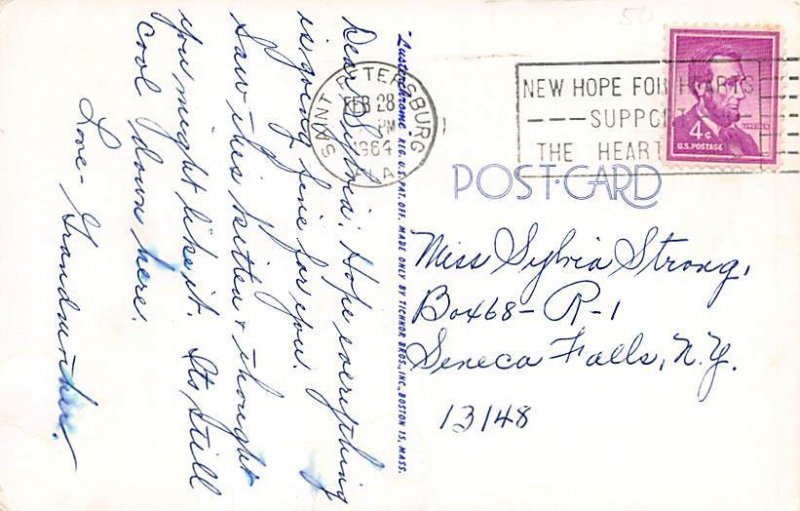 Dear Sylvia: Hope everything
is going fine for you.
Saw this kitten & thought
you might like it. Its still
cool down here.
Love - Grandmother.
"Lusterchrome" REG. U.S. PAT. OFF. MADE ONLY BY TICHNOR BROS., INC., BOSTON 15, MASS.
SAINT PETERSBURG
FEB 28
PM
1964
FLA
NEW HOPE FOR HEARTS
SUPPO
THE HEART
4¢
U.S. POSTAGE
POST-CARD
Miss Sylvia Strong,
Box 468- R-1
Seneca Falls, N.Y.
13148
50